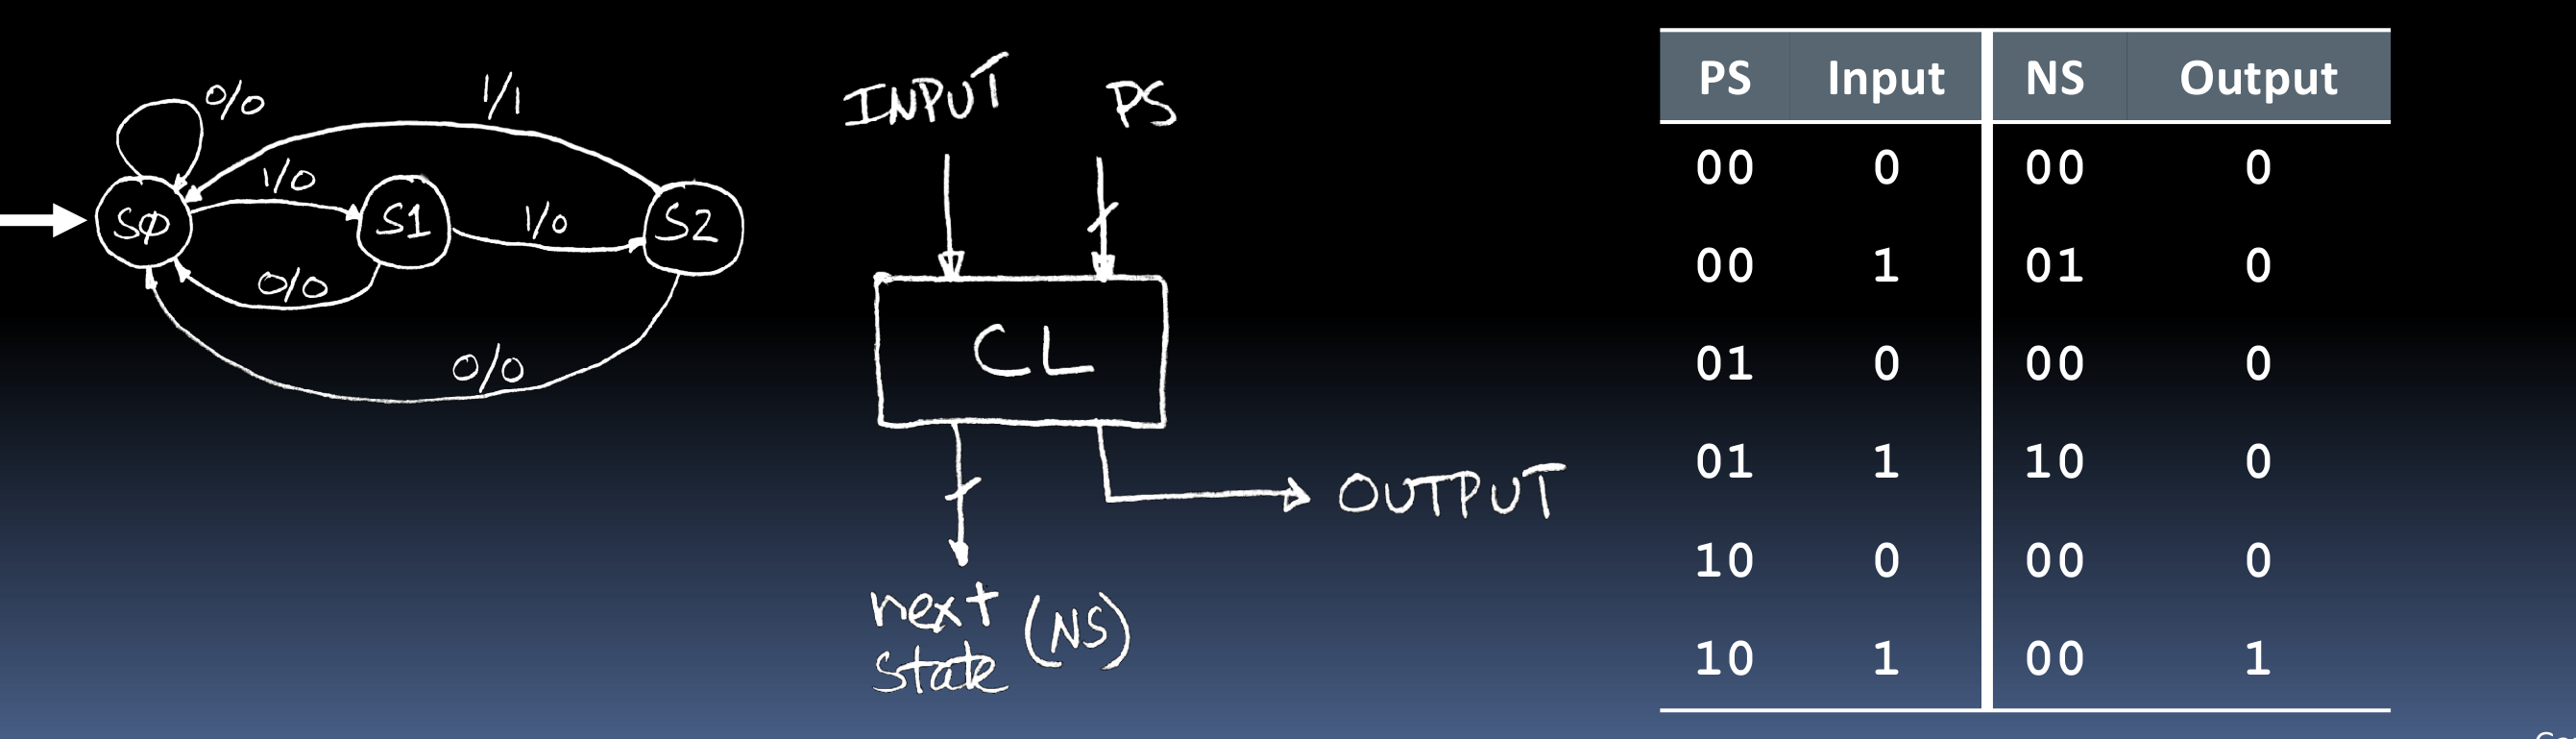 0/0
1/1
1/0
SΦ
S1
1/0
S2
0/0
0/0
INPUT PS
CL
OUTPUT
next (NS)
state
PS Input NS Output
00 0 00 0
00 1 01 0
01 0 00 0
01 1 10 0
10 0 00 0
10 1 00 1